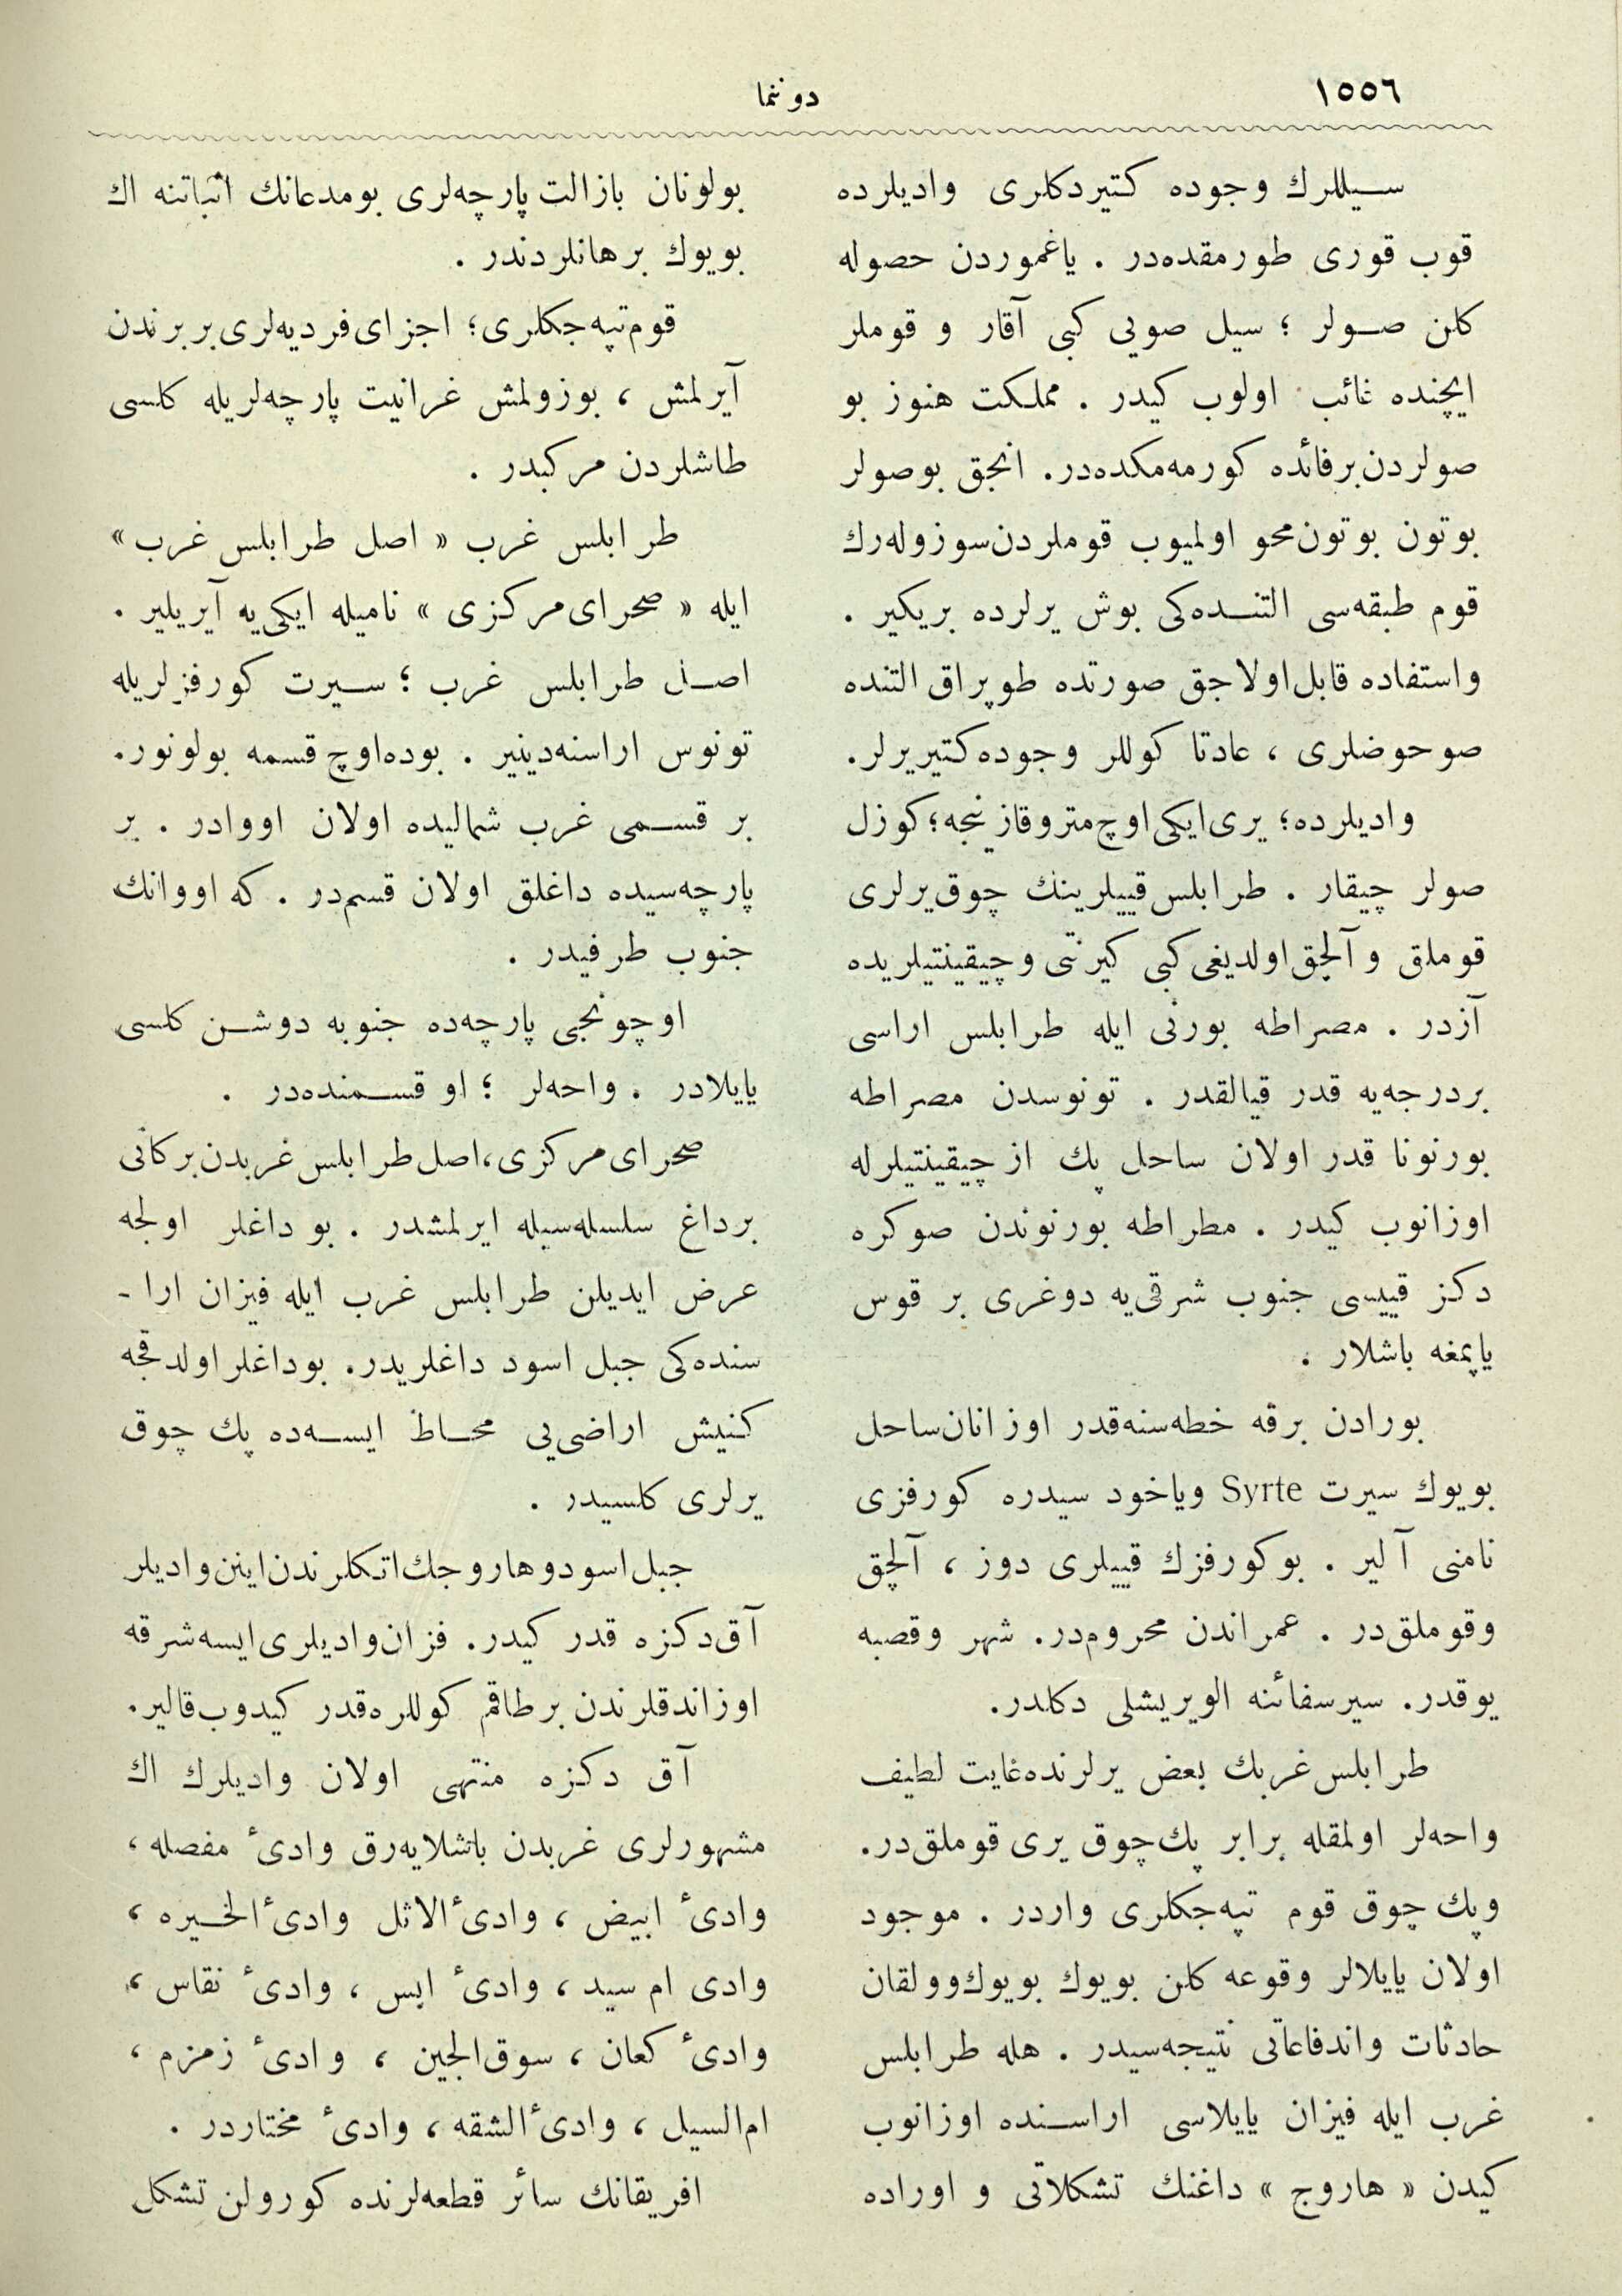 ١٥٥٦
دوننما
سیللرك وجوده كتیردكلری وادیلرده
قوب قوری طورمقده‌در . یاغموردن حصوله
كلن صولر ؛ سیل صویی كبی آقار و قوملر
ایچنده غائب اولوب كیدر . مملكت هنوز بو
صولردن برفائده كورمه‌مكده‌در. انجق بوصولر
بوتون بوتون محو اولمیوب قوملردن سوزوله‌رك
قوم طبقه‌سی التنده‌كی بوش یرلرده بریكیر .
واستفاده قابل اولاجق صورتده طوپراق التنده
صو حوضلری ، عادتا كوللر وجوده كتیریرلر.
وادیلرده؛ یری ایكی اوچ مترو قازینجه؛ كوزل
صولر چیقار . طرابلس قییلرینك چوق یرلری
قوملق و آلچق اولدیغی كبی كیرنتی و چیقینتیلریده
آزدر . مصراطه بورنی ایله طرابلس اراسی
بردرجه‌یه قدر قیالقدر . تونوسدن مصراطه
بورنونا قدر اولان ساحل پك از چیقینتیلرله
اوزانوب كیدر . مطراطه بورنوندن صوكره
دكز قییسی جنوب شرقی‌یه دوغری بر قوس
یاپمغه باشلار .
بورادن برقه خطه‌سنه قدر اوزانان ساحل
بویوك سیرت Syrte ویاخود سیدره كورفزی
نامنی آلیر . بو كورفزك قییلری دوز ، آلچق
وقوملق‌در . عمراندن محروم‌در. شهر وقصبه
یوقدر. سیرسفائنه الویریشلی دكلدر.
طرابلس غربك بعض یرلرنده غایت لطیف
واحه‌لر اولمقله برابر پك چوق یری قوملق‌در.
وپك چوق قوم تپه‌جكلری واردر . موجود
اولان یایلالر وقوعه كلن بویوك بویوك وولقان
حادثات واندفاعاتی نتیجه‌سیدر . هله طرابلس
غرب ایله فیزان یایلاسی اراسنده اوزانوب
كیدن « هاروج » داغنك تشكلاتی و اوراده
بولونان بازالت پارچه‌لری بومدعانك اثباتنه اك
بویوك برهانلردندر .
قوم تپه‌جكلری؛ اجزای فردیه‌لری بربرندن
آیرلمش ، بوزولمش غرانیت پارچه‌لریله كلسی
طاشلردن مركبدر .
طرابلس غرب « اصل طرابلس غرب »
ایله « صحرای مركزی » نامیله ایكی‌یه آیریلیر .
اصل طرابلس غرب ؛ سیرت كورفزلریله
تونوس اراسنه دینیر . بوده اوچ قسمه بولونور.
بر قسمی غرب شمالیده اولان اووادر . بر
پارچه‌سیده داغلق اولان قسم‌در . كه اووانك
جنوب طرفیدر .
اوچونجی پارچه‌ده جنوبه دوشن كلسی
یایلادر . واحه‌لر ؛ او قسمنده‌در .
صحرای مركزی، اصل طرابلس غربدن بركانی
برداغ سلسله‌سیله ایرلمشدر . بو داغلر اولجه
عرض ایدیلن طرابلس غرب ایله فیزان ارا -
سنده‌كی جبل اسود داغلریدر. بوداغلر اولدقجه
كنیش اراضی‌یی محاط ایسه‌ده پك چوق
یرلری كلسیدر .
جبل اسود و هاروجك اتكلرندن اینن وادیلر
آق دكزه قدر كیدر. فزان وادیلری ایسه شرقه
اوزاندقلرندن برطاقم كوللره قدر كیدوب قالیر.
آق دكزه منتهی اولان وادیلرك اك
مشهورلری غربدن باشلایه‌رق وادیٔ مفصله ،
وادیٔ ابیض ، وادیٔ الاثل وادیٔ الخیره ،
وادی ام سید ، وادیٔ ابس ، وادیٔ نقاس ،
وادیٔ كعان ، سوق الجین ، وادیٔ زمزم ،
ام السیل ، وادیٔ الشقه ، وادیٔ مختاردر .
افریقانك سائر قطعه‌لرنده كورولن تشكل